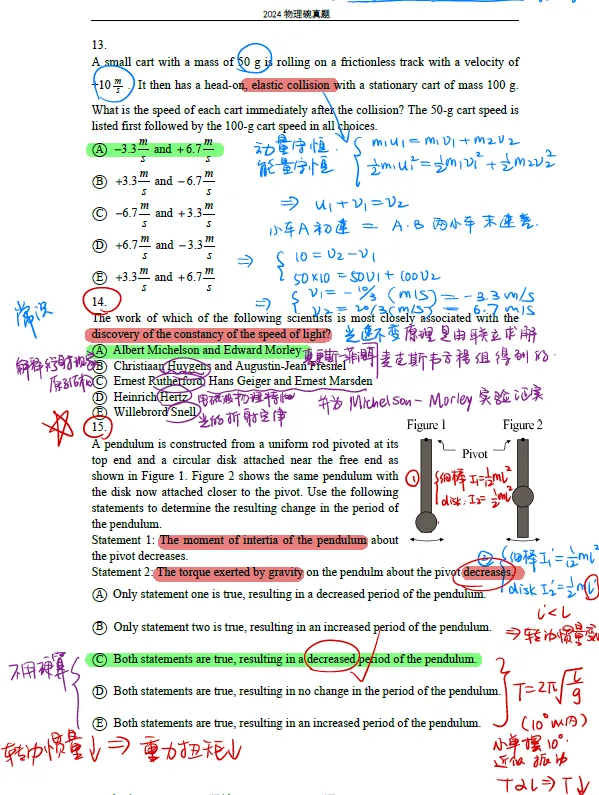 2024 物理碗真题
13.
A small cart with a mass of 50 g is rolling on a frictionless track with a velocity of
+10 m/s. It then has a head-on, elastic collision with a stationary cart of mass 100 g.
What is the speed of each cart immediately after the collision? The 50-g cart speed is
listed first followed by the 100-g cart speed in all choices.
Ⓐ −3.3 m/s and +6.7 m/s
Ⓑ +3.3 m/s and −6.7 m/s
Ⓒ −6.7 m/s and +3.3 m/s
Ⓓ +6.7 m/s and −3.3 m/s
Ⓔ +3.3 m/s and +6.7 m/s
动量守恒. m₁u₁ = m₁v₁ + m₂v₂
能量守恒 ½m₁u₁² = ½m₁v₁² + ½m₂v₂²
⇒ u₁ + v₁ = v₂
小车A初速 = A.B两小车末速差.
⇒ 10 = v₂ − v₁
50×10 = 50v₁ + 100v₂
⇒ v₁ = −10/3 (m/s) = −3.3 m/s
v₂ = 20/3 (m/s) = 6.7 m/s
常识
14.
The work of which of the following scientists is most closely associated with the
discovery of the constancy of the speed of light?
光速不变原理是由联立求解
Ⓐ Albert Michelson and Edward Morley
麦克斯韦方程组得到的.
Ⓑ Christiaan Huygens and Augustin-Jean Fresnel
Ⓒ Ernest Rutherford, Hans Geiger and Ernest Marsden
Ⓓ Heinrich Hertz
并为 Michelson - Morley 实验证实
Ⓔ Willebrord Snell
光的折射定律
15.
A pendulum is constructed from a uniform rod pivoted at its
top end and a circular disk attached near the free end as
shown in Figure 1. Figure 2 shows the same pendulum with
the disk now attached closer to the pivot. Use the following
statements to determine the resulting change in the period of
the pendulum.
Figure 1 Figure 2
Pivot
① 细棒 I₁ = 1/12 ml²
disk: I₂ = ½ml²
Statement 1: The moment of intertia of the pendulum about
the pivot decreases.
Statement 2: The torque exerted by gravity on the pendulm about the pivot decreases.
② 细棒 I₁' = 1/12 ml²
disk I₂' = ½ml
i < L
⇒ 转动惯量变
Ⓐ Only statement one is true, resulting in a decreased period of the pendulum.
Ⓑ Only statement two is true, resulting in an increased period of the pendulum.
Ⓒ Both statements are true, resulting in a decreased period of the pendulum.
Ⓓ Both statements are true, resulting in no change in the period of the pendulum.
Ⓔ Both statements are true, resulting in an increased period of the pendulum.
不用硬算
T = 2π√(L/g)
(10°以内)
小单摆10°
近似振动
T∝L ⇒ T↓
转动惯量↓ ⇒ 重力扭矩↓